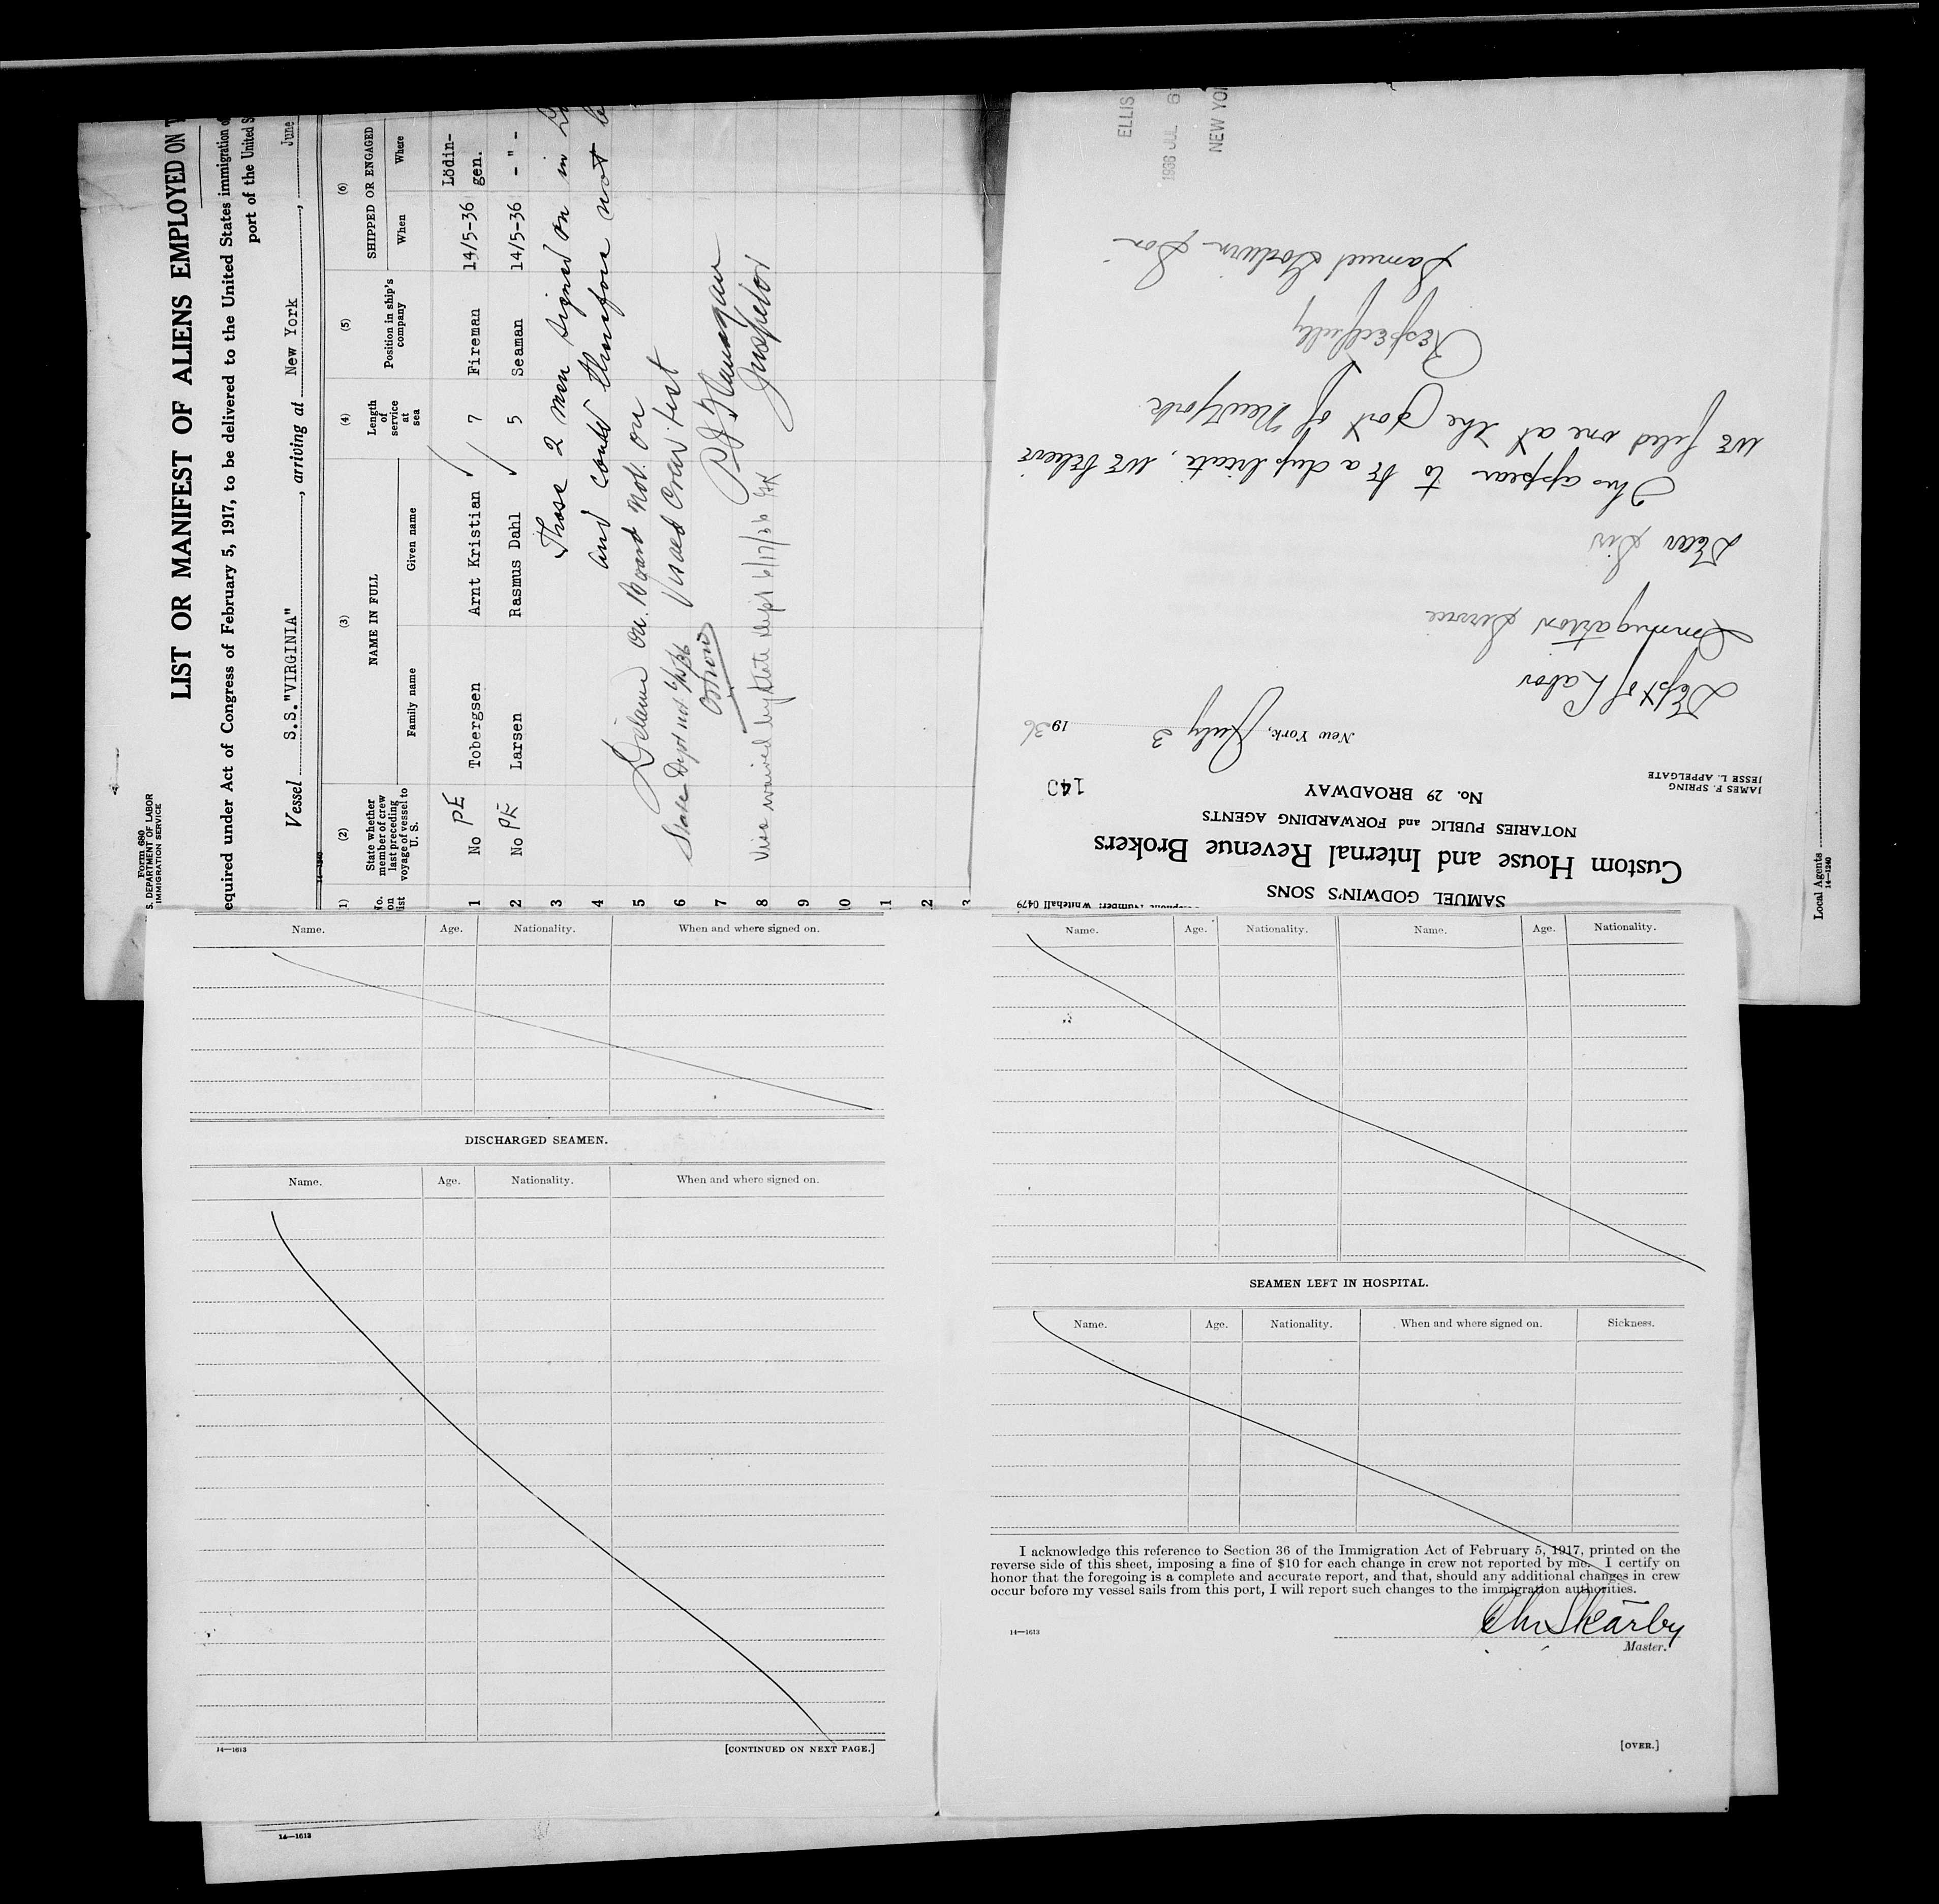 Form 680
S. DEPARTMENT OF LABOR
IMMIGRATION SERVICE
LIST OR MANIFEST OF ALIENS EMPLOYED ON T
equired under Act of Congress of February 5, 1917, to be delivered to the United States immigration of
port of the United S
Vessel S.S."VIRGINIA", arriving at New York, June
14—1240
1) (2) (3) (4) (5) (6)
No. on list
State whether member of crew last preceding voyage of vessel to U. S.
NAME IN FULL
Family name Given name
Length of service at sea
Position in ship's company
SHIPPED OR ENGAGED
When Where
1 No PE Tobergsen Arnt Kristian 7 Fireman 14/5-36 Lödin-gen.
2 No PE Larsen Rasmus Dahl 5 Seaman 14/5-36 - " -
3 Those 2 men signed on in
4 and could therefore not be
5 on board not on
6 State Dept not 6/ /36 Visaed Crew List
7
8 Visa waived by State Dept 6/17/36
Inspector
9
10
11
2
3
ELLIS
1936 JUL 6
NEW YOR
Telephone Number: Whitehall 0479
SAMUEL GODWIN'S SONS
Custom House and Internal Revenue Brokers
NOTARIES PUBLIC and FORWARDING AGENTS
No. 29 BROADWAY
JAMES F. SPRING
JESSE L. APPELGATE
140
New York, July 3 1936
Dept of Labor
Immigration Service
Dear Sir
This appear to be a duplicate, we believe
we filed one at the Port of New York
Respectfully
Samuel Godwin Son
Local Agents
14—1240
Name. Age. Nationality. When and where signed on.
DISCHARGED SEAMEN.
Name. Age. Nationality. When and where signed on.
14—1613
[CONTINUED ON NEXT PAGE.]
14—1613
Name. Age. Nationality. Name. Age. Nationality.
SEAMEN LEFT IN HOSPITAL.
Name. Age. Nationality. When and where signed on. Sickness.
I acknowledge this reference to Section 36 of the Immigration Act of February 5, 1917, printed on the
reverse side of this sheet, imposing a fine of $10 for each change in crew not reported by me. I certify on
honor that the foregoing is a complete and accurate report, and that, should any additional changes in crew
occur before my vessel sails from this port, I will report such changes to the immigration authorities.
Chr Skarby
14—1613
Master.
[OVER.]